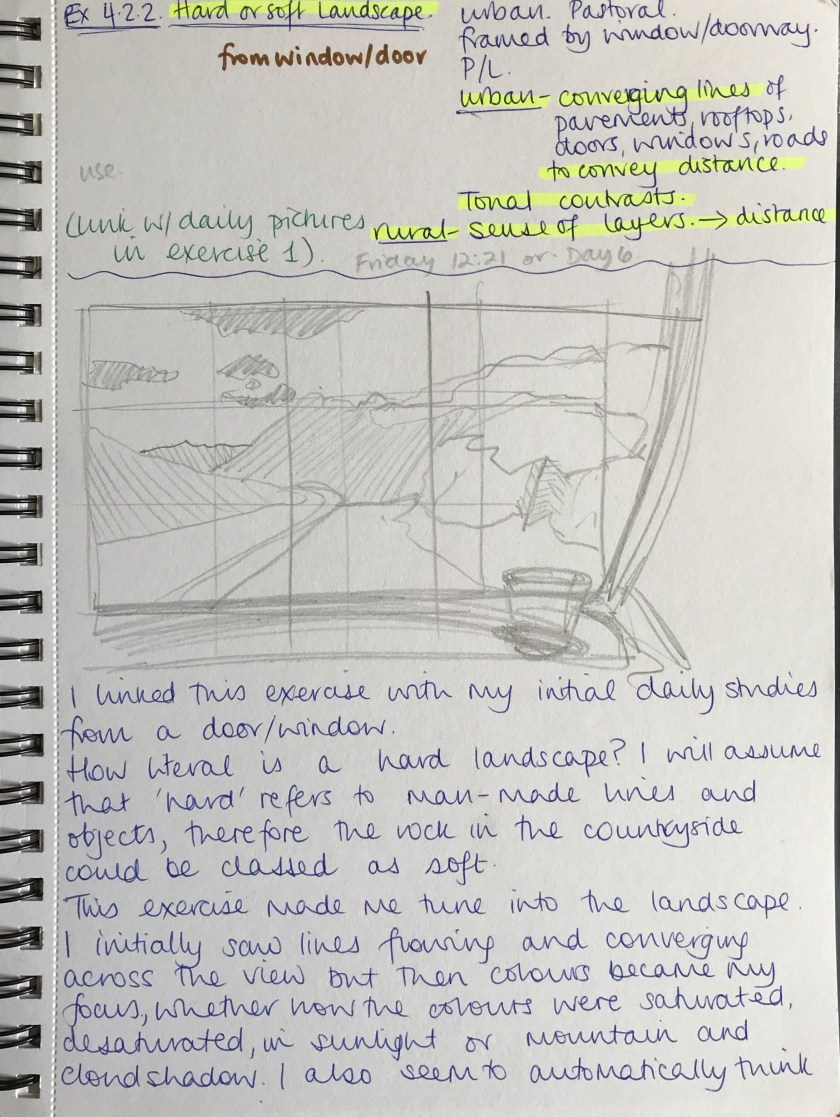 Ex 4.2.2. Hard or soft Landscape.
from window/door
urban. Pastoral.
framed by window/doorway.
P/L.
urban - converging lines of
pavements, rooftops,
doors, windows, roads
to convey distance.
Tonal contrasts.
rural - sense of layers. → distance
use
(link w/ daily pictures
in exercise 1).
Friday 12:21 or Day 6.
I linked this exercise with my initial daily studies
from a door/window.
How literal is a hard landscape? I will assume
that 'hard' refers to man-made lines and
objects, therefore the rock in the countryside
could be classed as soft.
This exercise made me tune into the landscape.
I initially saw lines flowing and converging
across the view but then colours became my
focus, whether how the colours were saturated,
desaturated, in sunlight or mountain and
cloud shadow. I also seem to automatically think